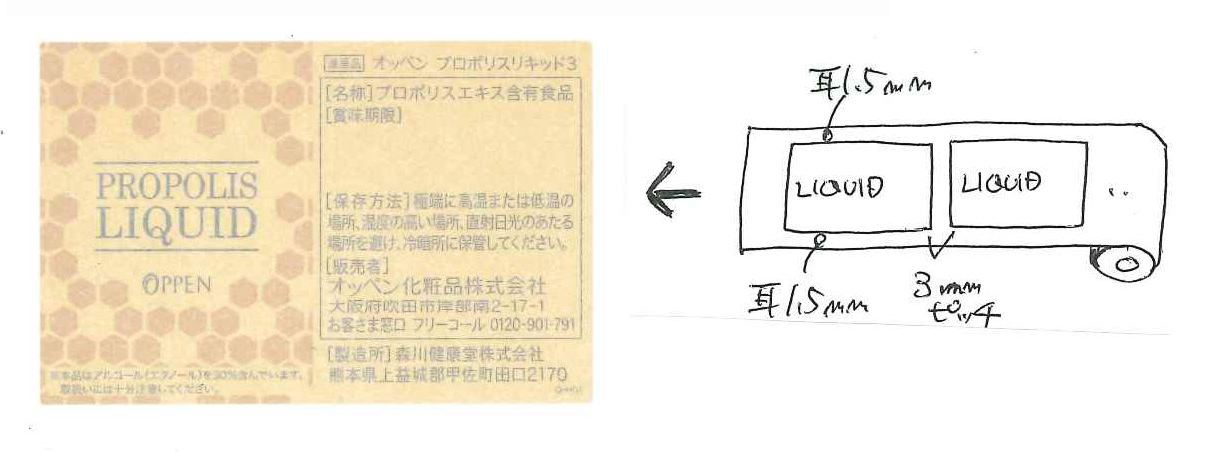 PROPOLIS
LIQUID
OPPEN
※本品はアルコール(エタノール)を30%含んでいます。
取扱いには十分注意してください。
オッペン プロポリスリキッド3
[名称]プロポリスエキス含有食品
[賞味期限]
[保存方法]極端に高温または低温の
場所、湿度の高い場所、直射日光のあたる
場所を避け、冷暗所に保管してください。
[販売者]
オッペン化粧品株式会社
大阪府吹田市岸部南2-17-1
お客さま窓口 フリーコール 0120-901-791
[製造所]森川健康堂株式会社
熊本県上益城郡甲佐町田口2170
耳1.5mm
LIQUID
LIQUID
‥
耳1.5mm
3mm
ピッチ